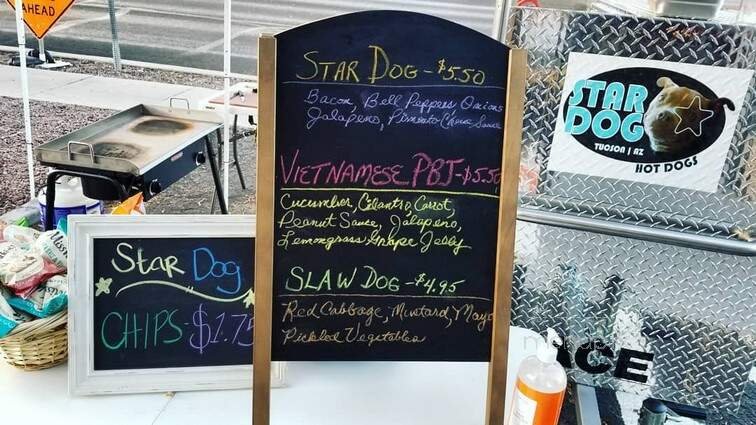 AHEAD
STAR DOG - $5.50
Bacon, Bell Peppers, Onions
Jalapenos, Pimento Cheese Sauce
VIETNAMESE PBJ - $5.50
Cucumber, Cilantro, Carrot,
Peanut Sauce, Jalapeno,
Lemongrass Grape Jelly
SLAW DOG - $4.95
Red Cabbage, Mustard, Mayo
Pickled Vegetables
Star Dog
CHIPS - $1.75
STAR
DOG
TUCSON | AZ
HOT DOGS
ICE